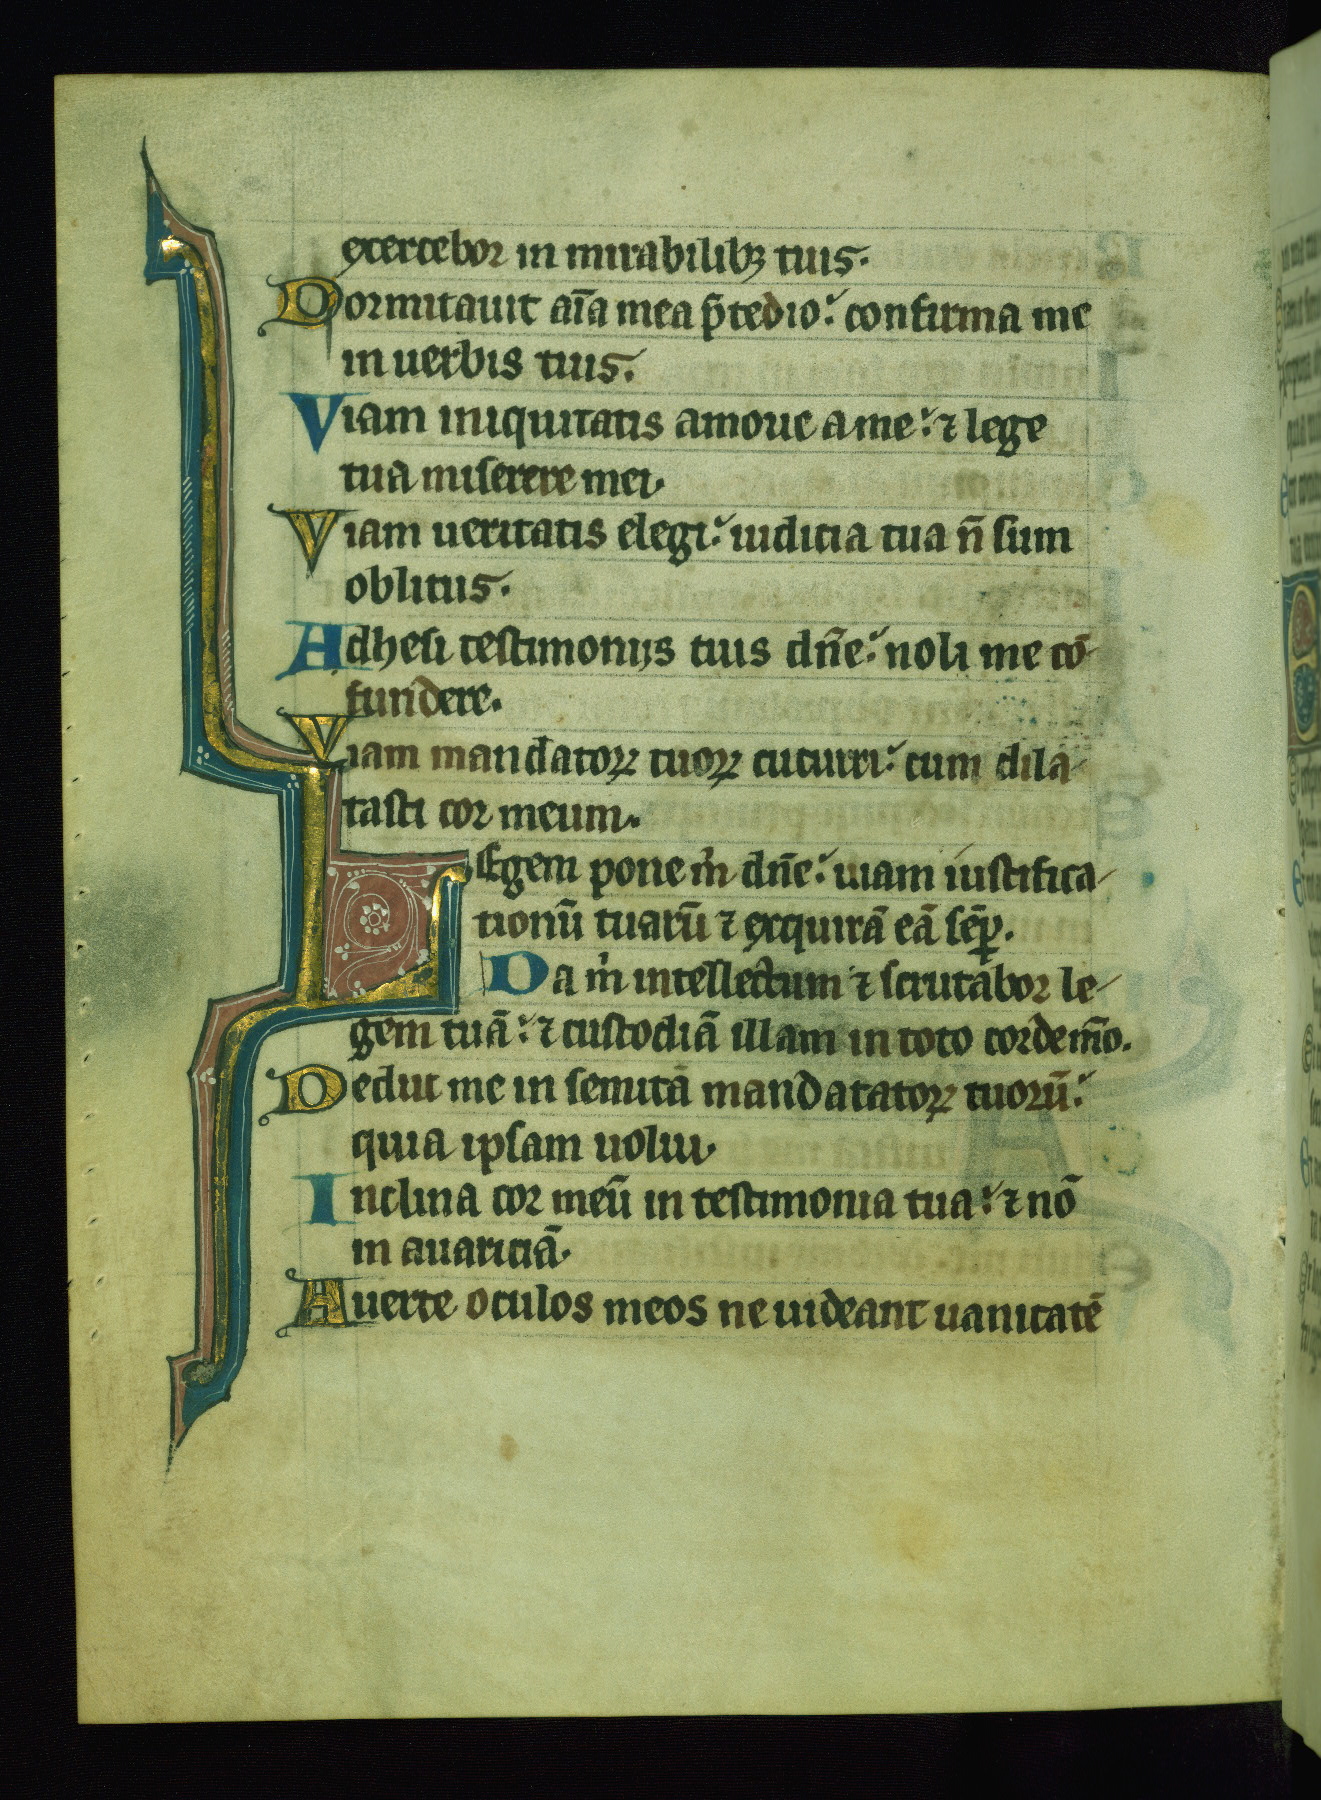 exercebor in mirabilibꝫ tuis.
Dormitauit aīa mea p̄ tedio: confirma me
in uerbis tuis.
Viam iniquitatis amoue a me: ⁊ lege
tua miserere mei.
Viam ueritatis elegi: iudicia tua n̄ sum
oblitus.
Adhesi testimonijs tuis dn̄e: noli me cō-
fundere.
Viam mandatoꝝ tuoꝝ cucurri: cum dila-
tasti cor meum.
LEgem pone m̊ dn̄e: uiam iustifica-
tionū tuarū ⁊ exquirā eā sēꝑ.
Da m̊ intellectum ⁊ scrutabor le-
gem tuā: ⁊ custodiā illam in toto corde m̄o.
Deduc me in semitā mandatatoꝝ tuorū:
quia ipsam uolui.
Inclina cor meū in testimonia tua: ⁊ nō
in auariciā.
Auerte oculos meos ne uideant uanitatē